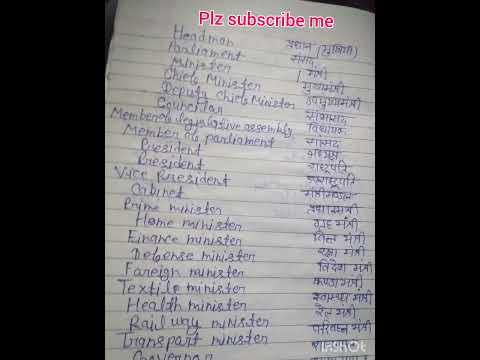 Plz subscribe me
Headman प्रधान (मुखिया)
Parliament संसद
Minister मंत्री
Chief Minister मुख्यमंत्री
Deputy chief Minister उपमुख्यमंत्री
Councilor सभासद
Member of legislative assembly विधायक
Member of parliament सांसद
President अध्यक्ष
President राष्ट्रपति
Vice President उपराष्ट्रपति
Cabinet मंत्रीमण्डल
Prime minister प्रधानमंत्री
Home minister गृह मंत्री
Finance minister वित्त मंत्री
Defense minister रक्षा मंत्री
Foreign minister विदेश मंत्री
Textile minister कपड़ा मंत्री
Health minister स्वास्थ्य मंत्री
Rail way minister रेल मंत्री
Transport minister परिवहन मंत्री
Governor